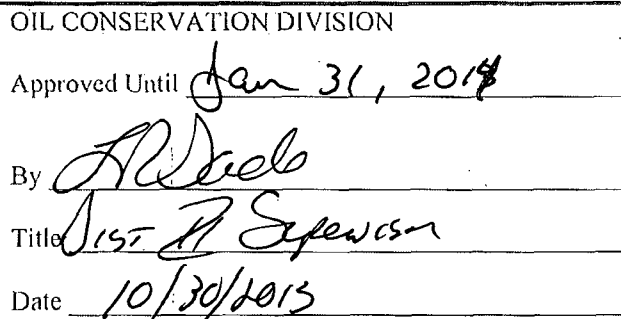 OIL CONSERVATION DIVISION
Approved Until Jan 31, 2014
By LRDade
Title Dist II Supervisor
Date 10/30/2013